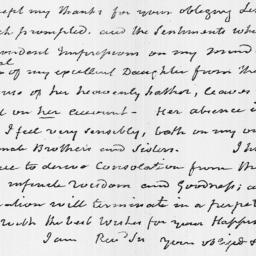 my thanks for your obliging
prompted. and the Sentiments
Impressions on my mind
of my excellent Daughter from the
of her heavenly father, leaves
on her account - Her absence
I feel very sensibly, both on my
Brothers and Sisters. I
to derive Consolation from
Wisdom and Goodness;
will terminate in a
with the best Wishes for your
I am Revd Sir your